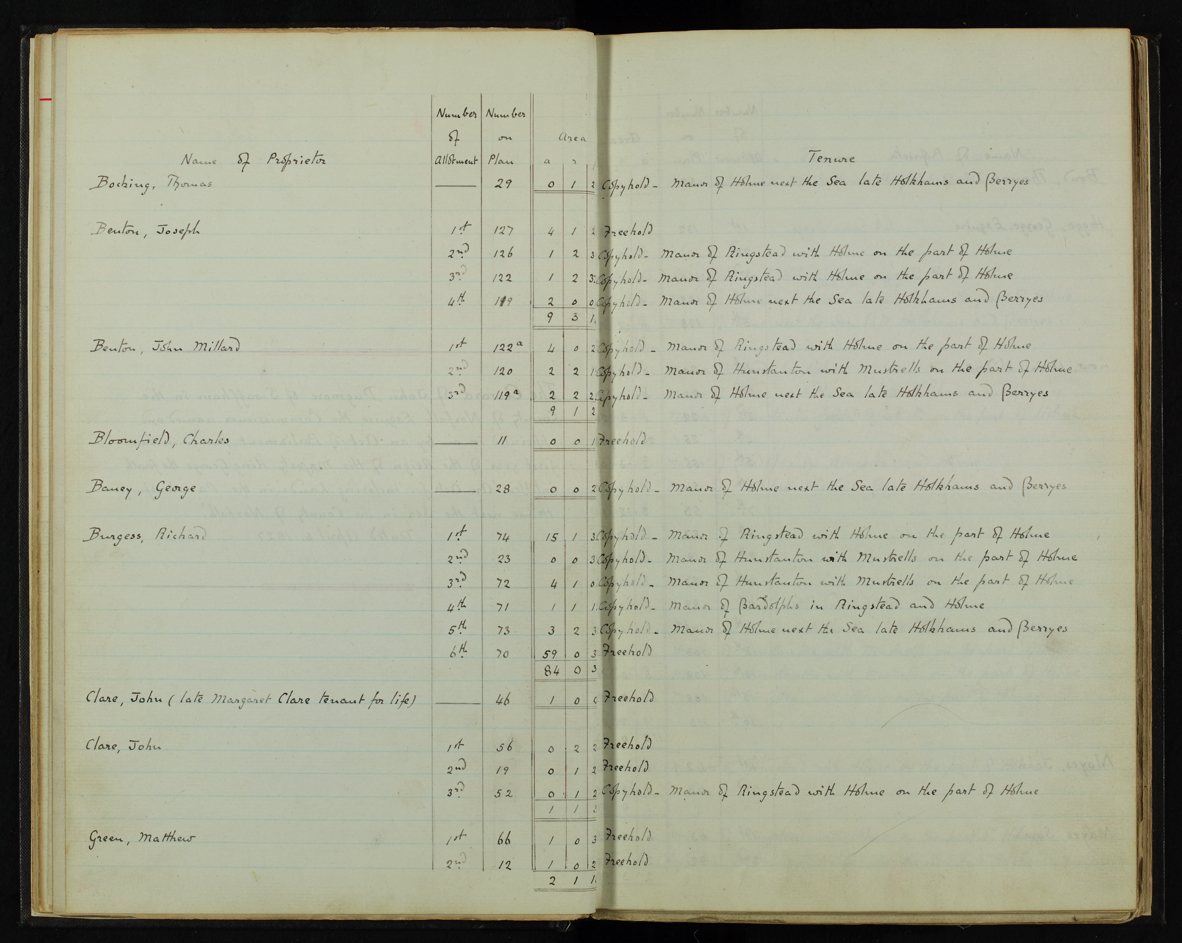 Number Number
of on Area
Name of Proprietor Allotment Plan a r Tenure
Bocking, Thomas 29 0 1 2 Copyhold - Manor of Holme next the Sea late Holkhams and Berryes
Benton, Joseph 1st 127 4 1 2 Freehold
2nd 126 1 2 3 Copyhold - Manor of Ringstead with Holme on the part of Holme
3rd 122 1 2 3 Copyhold - Manor of Ringstead with Holme on the part of Holme
4th 119 2 0 0 Copyhold - Manor of Holme next the Sea late Holkhams and Berryes
9 3 1
Benton, John Millard 1st 122a 4 0 2 Copyhold - Manor of Ringstead with Holme on the part of Holme
2nd 120 2 2 1 Copyhold - Manor of Hunstanton with Mustrells on the part of Holme
3rd 119a 2 2 2 Copyhold - Manor of Holme next the Sea late Holkhams and Berryes
9 1 2
Bloomfield, Charles 11 0 0 1 Freehold
Baney, George 28 0 0 2 Copyhold - Manor of Holme next the Sea late Holkhams and Berryes
Burgess, Richard 1st 74 15 1 3 Copyhold - Manor of Ringstead with Holme on the part of Holme
2nd 23 0 0 3 Copyhold - Manor of Hunstanton with Mustrells on the part of Holme
3rd 72 4 1 0 Copyhold - Manor of Hunstanton with Mustrells on the part of Holme
4th 71 1 1 1 Copyhold - Manor of Bardolphs in Ringstead and Holme
5th 73 3 2 3 Copyhold - Manor of Holme next the Sea late Holkhams and Berryes
6th 70 59 0 3 Freehold
84 0 3
Clare, John (late Margaret Clare tenant for life) 46 1 0 0 Freehold
Clare, John 1st 56 0 2 2 Freehold
2nd 19 0 1 2 Freehold
3rd 52 0 1 2 Copyhold - Manor of Ringstead with Holme on the part of Holme
1 1
Green, Matthew 1st 66 1 0 3 Freehold
2nd 12 1 0 2 Freehold
2 1 1